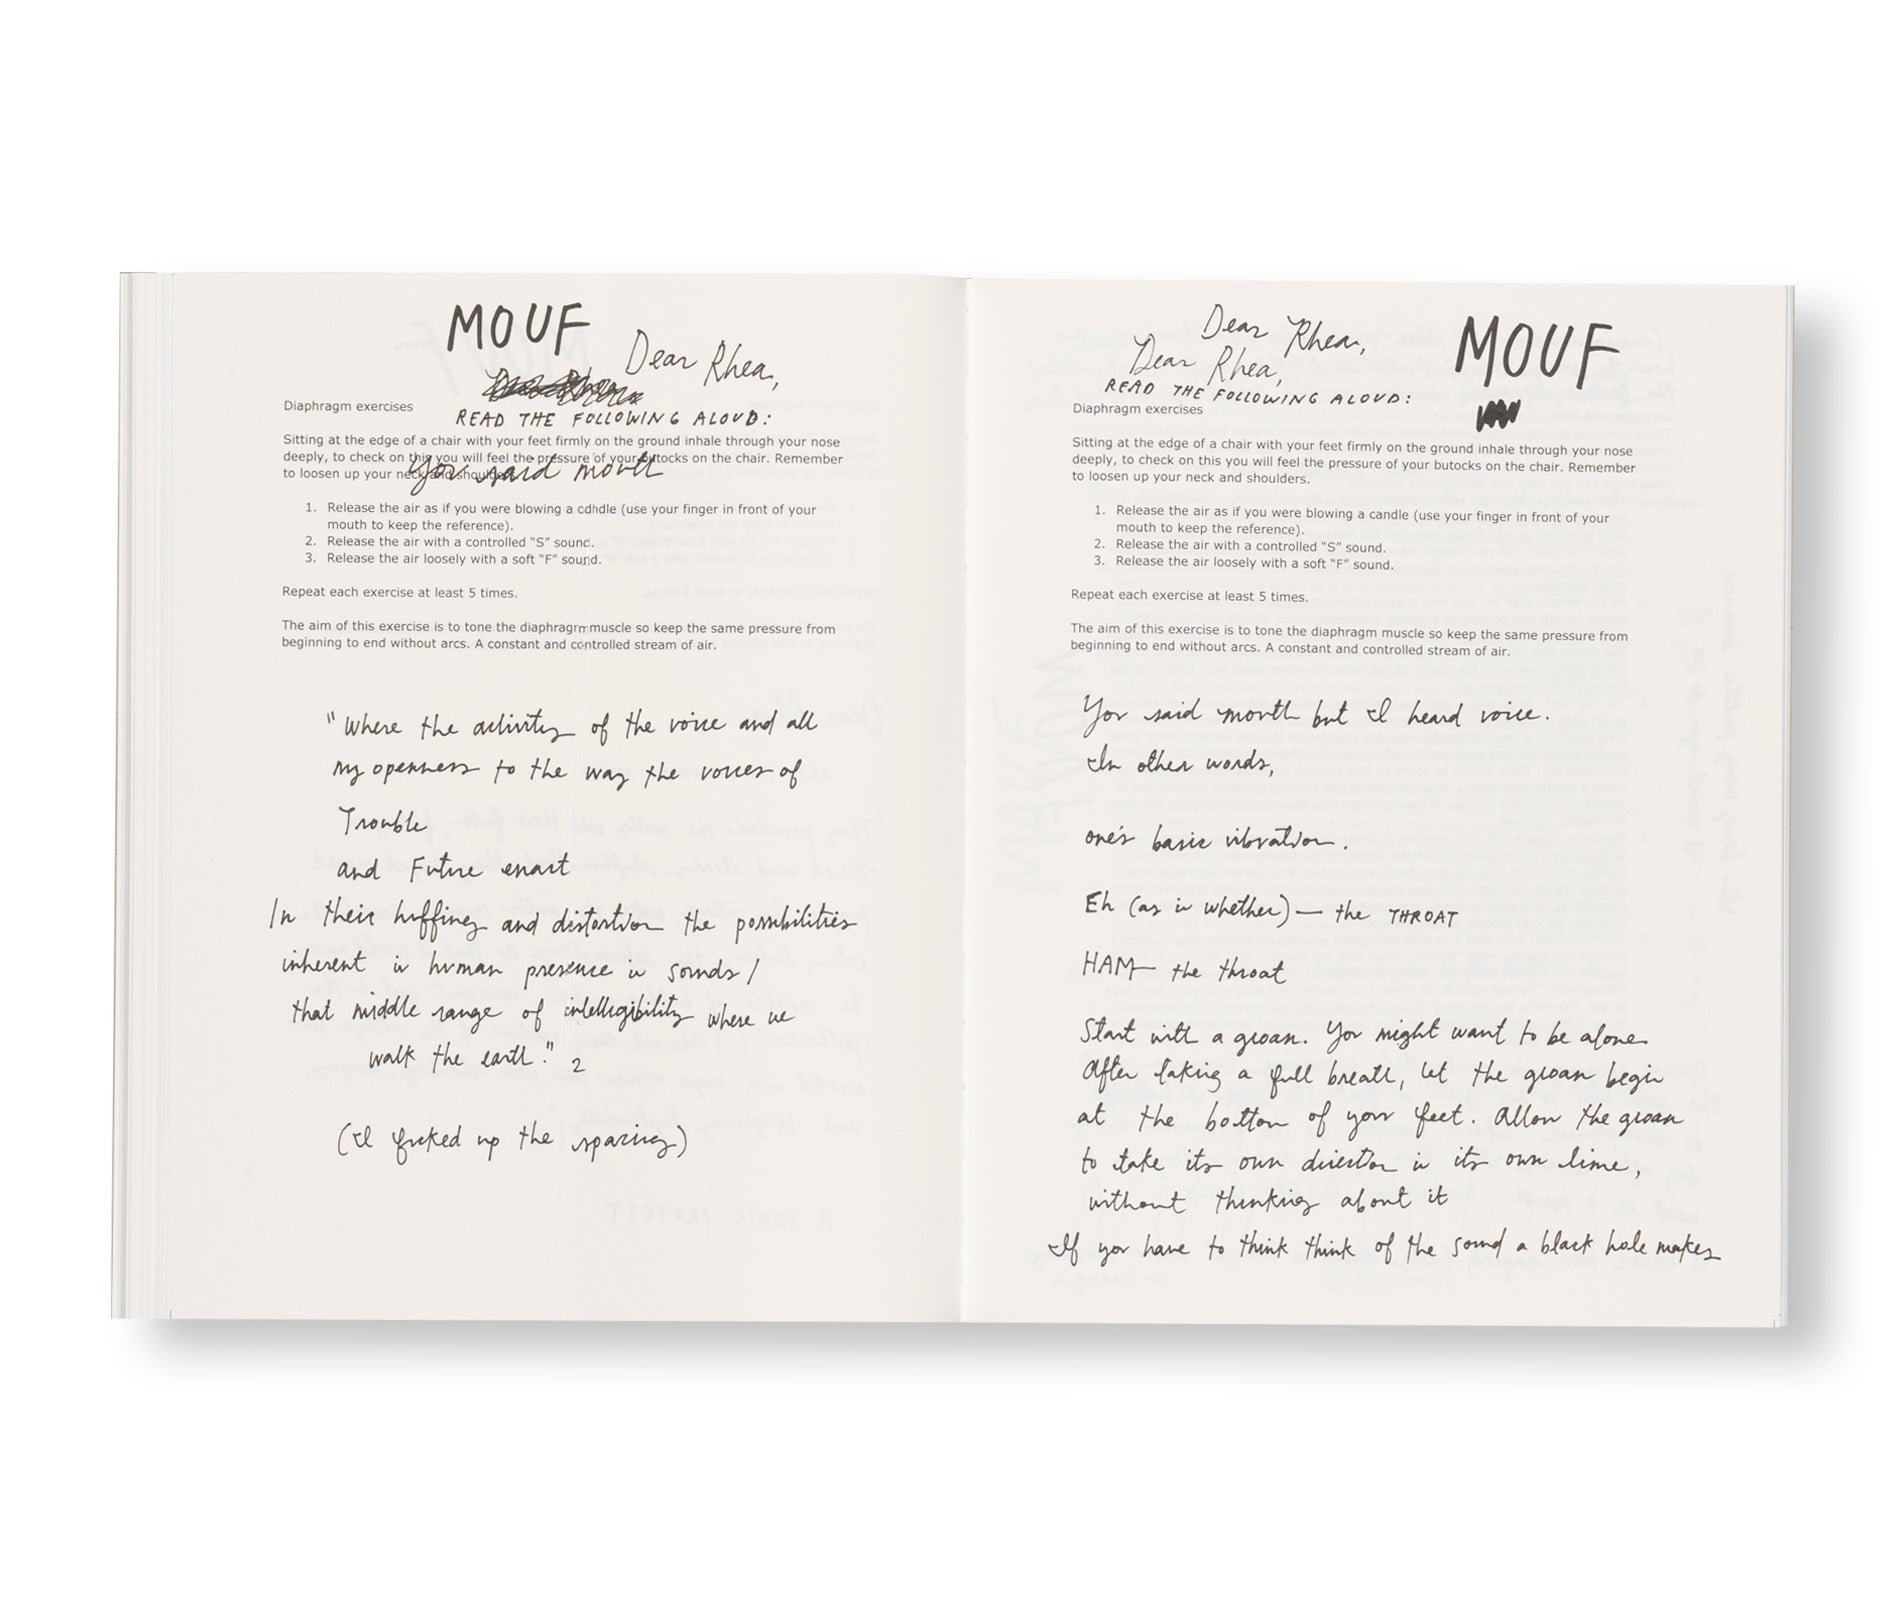 MOUF
Dear Rhea,
Diaphragm exercises
READ THE FOLLOWING ALOUD:
Sitting at the edge of a chair with your feet firmly on the ground inhale through your nose
deeply, to check on this you will feel the pressure of your butocks on the chair. Remember
to loosen up your neck and shoulders.
You said mouth
1. Release the air as if you were blowing a candle (use your finger in front of your
mouth to keep the reference).
2. Release the air with a controlled “S” sound.
3. Release the air loosely with a soft “F” sound.
Repeat each exercise at least 5 times.
The aim of this exercise is to tone the diaphragm muscle so keep the same pressure from
beginning to end without arcs. A constant and controlled stream of air.
"Where the activity of the voice and all
my openness to the way the voices of
Trouble
and Future enact
In their huffing and distortion the possibilities
inherent in human presence in sounds/
that middle range of intelligibility where we
walk the earth." 2
(I fucked up the spacing)
Dear Rhea,
MOUF
Dear Rhea,
READ THE FOLLOWING ALOUD:
Diaphragm exercises
Sitting at the edge of a chair with your feet firmly on the ground inhale through your nose
deeply, to check on this you will feel the pressure of your butocks on the chair. Remember
to loosen up your neck and shoulders.
1. Release the air as if you were blowing a candle (use your finger in front of your
mouth to keep the reference).
2. Release the air with a controlled “S” sound.
3. Release the air loosely with a soft “F” sound.
Repeat each exercise at least 5 times.
The aim of this exercise is to tone the diaphragm muscle so keep the same pressure from
beginning to end without arcs. A constant and controlled stream of air.
You said mouth but I heard voice.
In other words,
one's basic vibration.
Eh (as in whether) — the THROAT
HAM — the throat
Start with a groan. You might want to be alone
After taking a full breath, let the groan begin
at the bottom of your feet. Allow the groan
to take its own direction in its own time,
without thinking about it
If you have to think think of the sound a black hole makes